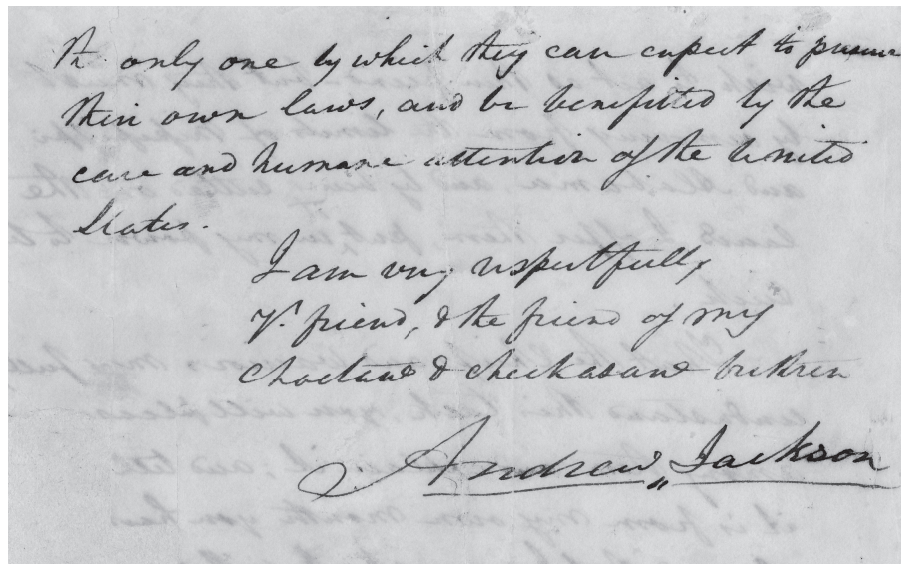 The only one by which they can expect to preserve
their own laws, and be benefitted by the
care and humane attention of the United
States.
I am very respectfully
Yr. friend, & the friend of my
Choctaw & Checkasaw brethren
Andrew Jackson